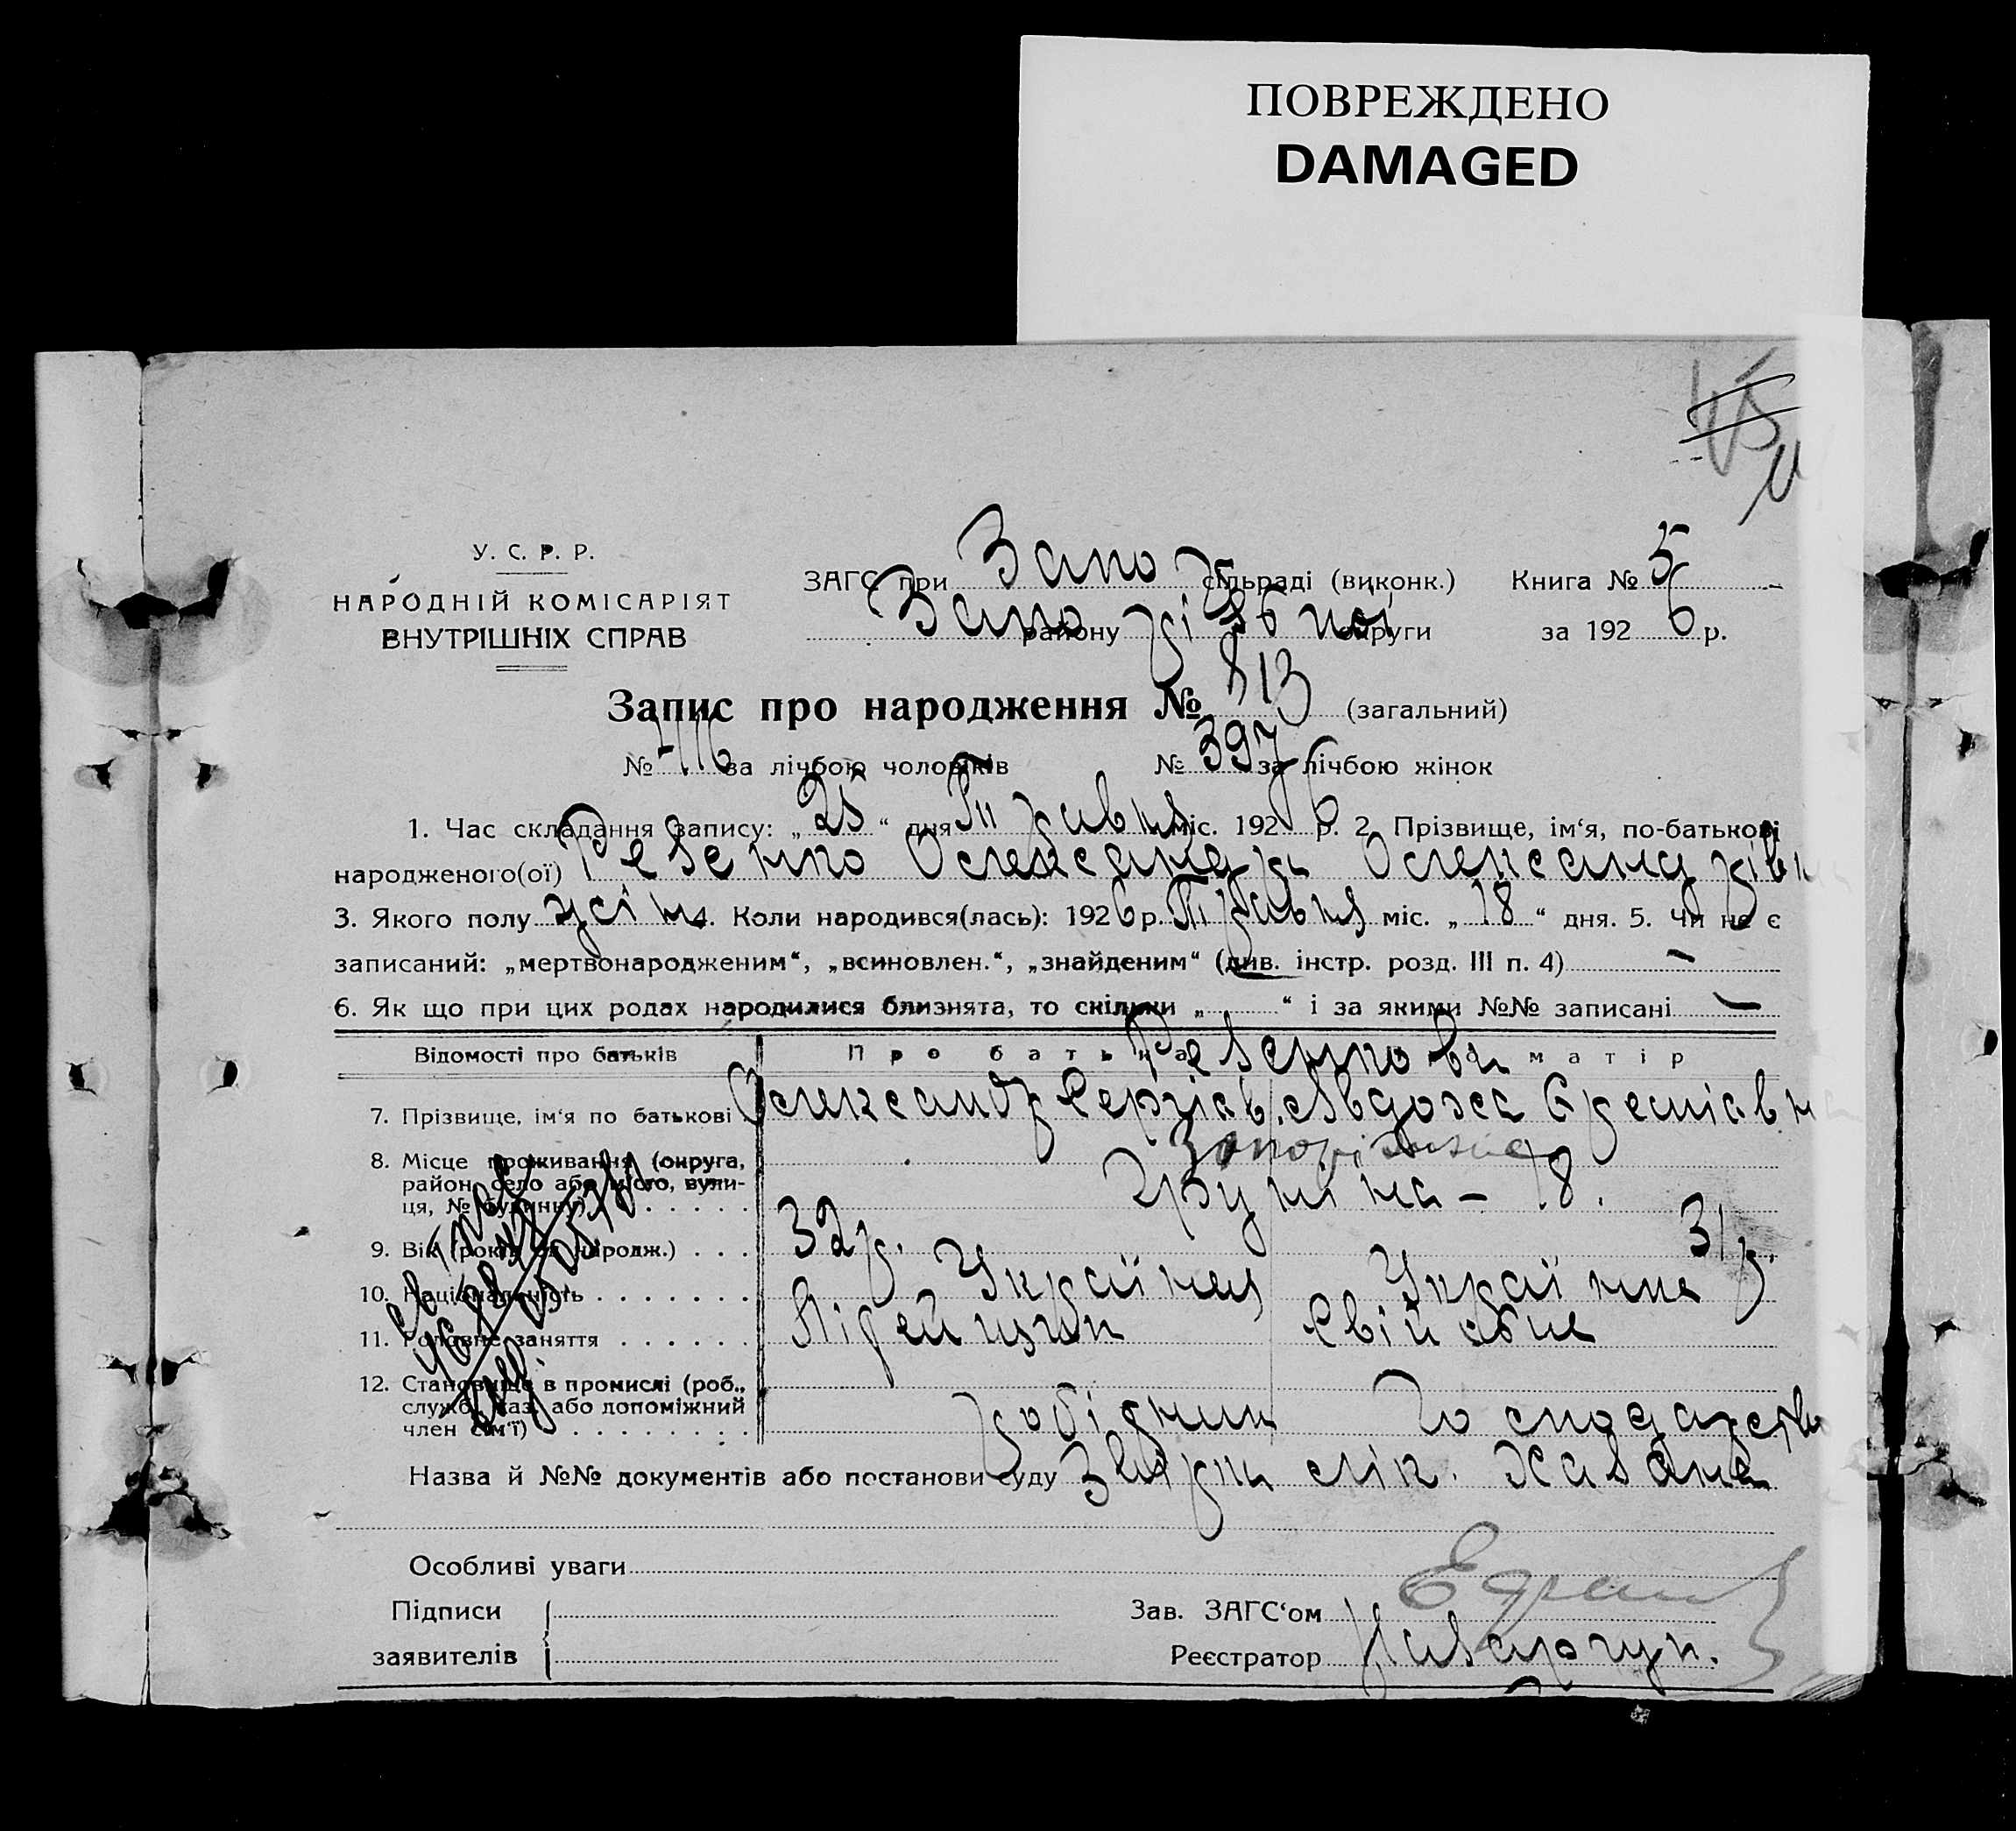 ПОВРЕЖДЕНО
DAMAGED
У. С. Р. Р.
НАРОДНІЙ КОМІСАРІЯТ
ВНУТРІШНІХ СПРАВ
ЗАГС при Запо сільраді (виконк.) Книга № 5
Запо району різької округи за 1926 р.
Запис про народження № 813 (загальний)
№ 416 за лічбою чоловіків № 397 за лічбою жінок
1. Час складання запису: „ 25 “ дня Травня міс. 1926 р. 2 Прізвище, ім‘я, по-батькові
народженого(ої) Олександра Олександрівна
3. Якого полу жін 4. Коли народився(лась): 1926 р. Травня міс. „ 18 “ дня. 5. Чи не є
записаний: „мертвонародженим“, „всиновлен.“, „знайденим“ (див. інстр. розд. III п. 4) —
6. Як що при цих родах народилися близнята, то скільки „ “ і за якими №№ записані —
Відомості про батьків Про батька матір
7. Прізвище, ім‘я по батькові Олександр Сергіев. Авдожа
8. Місце проживання (округа,
район, село або місто, вули-
ця, № будинку)
9. Вік (років од народж.) 32 р. 31 р.
10. Національність Українец Українка
11. Головне заняття
12. Становище в промислі (роб.,
служб., хаз. або допоміжний
член сім‘ї) робідник
Назва й №№ документів або постанови суду
Особливі уваги
Підписи
заявителів
Зав. ЗАГС‘ом
Реєстратор